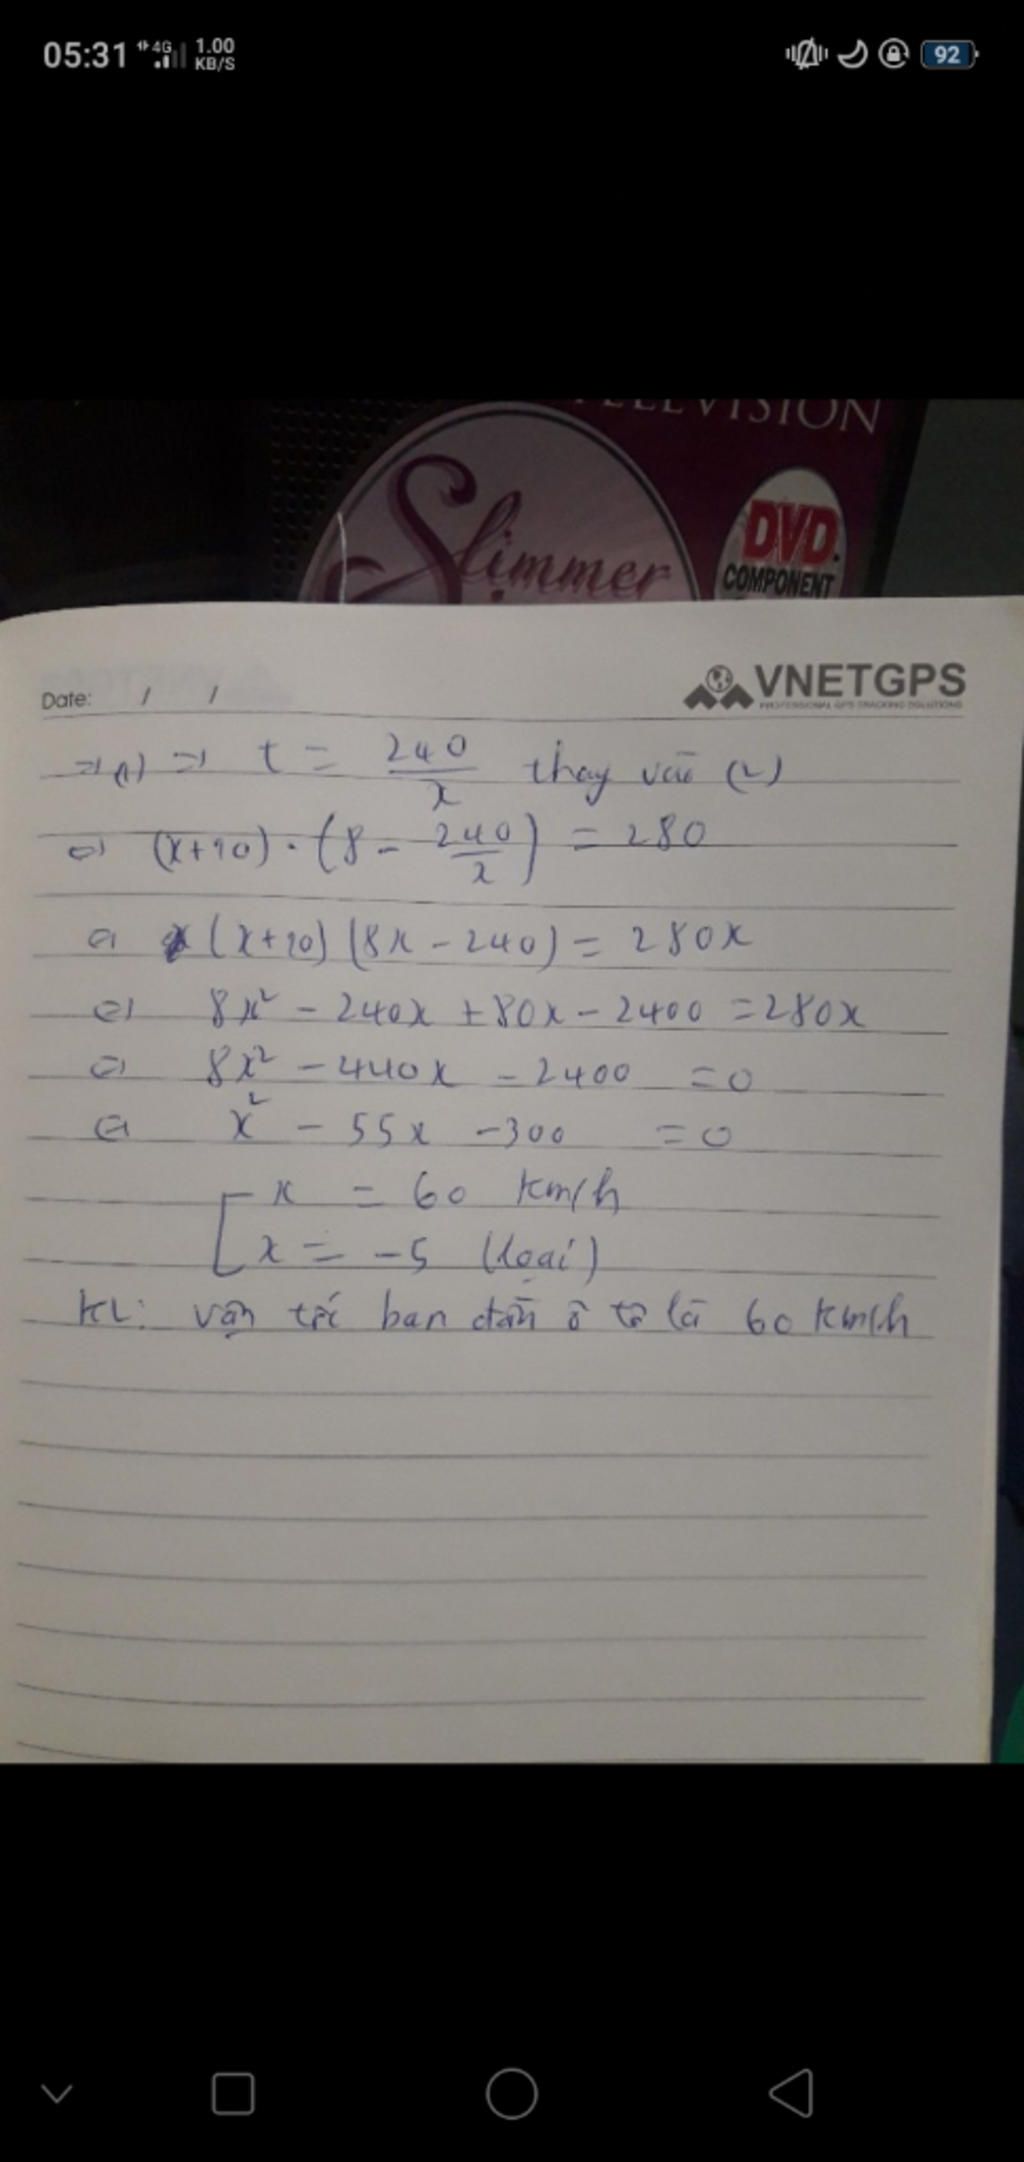 05:31 4G 1.00 KB/S 92
TELEVISION
Slimmer
DVD
COMPONENT
Date: / /
VNETGPS
PROFESSIONAL GPS TRACKING SOLUTIONS
=> (1) => t = 240/x thay vào (2)
<=> (x+10) . (8 - 240/x) = 280
<=> (x+10) (8x - 240) = 280x
<=> 8x² - 240x + 80x - 2400 = 280x
<=> 8x² - 440x - 2400 = 0
<=> x² - 55x - 300 = 0
[ x = 60 km/h
x = -5 (loại)
KL: vận tốc ban đầu ô tô là 60 km/h